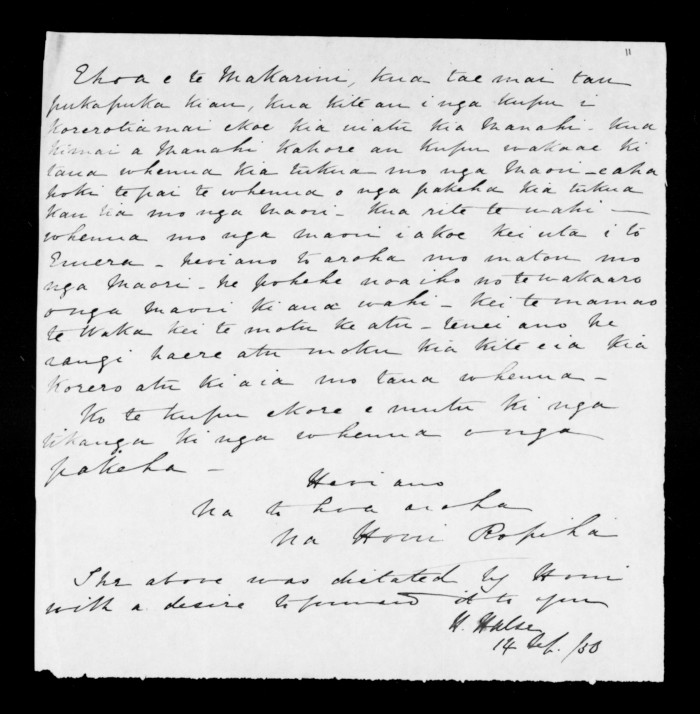 11
Ehoa e te Makarini, kua tae mai tau
pukapuka kiau, kua kite au i nga kupu i
korerotiamai ekoe kia uiatu kia Manahi - kua
kimai a Manahi kahore au kupu wakaae ki
tana whenua kia tukua mo nga Maori - eaha
hoki tepai te whenua o nga pakeha kia tukua
kau ia mo nga Maori - kua rite te wahi -
whenua mo nga maori iakoe kei uta i to
Emera - heviano to aroha mo matou mo
nga Maori - he pohehe noaiho no te wakaaro
onga Maori kiana wahi - kei te mamao
te Waka kei te motu ke atu - tenei ano he
rangi haere atu moku kia kite eia kia
korero atu ki aia mo tana whenua -
Ko te kupu ekore e mutu ki nga
tikanga ki nga whenua onga
pakeha -
Hevi ano
Na to hoa aroha
Na Honi Ropiha
The above was dictated by Honi
with a desire to forward it to you
H. Halse
14 /50